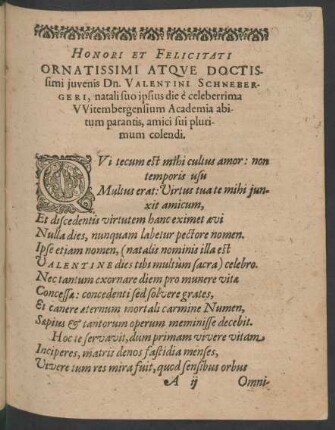 HONORI ET FELICITATI
ORNATISSIMI ATQVE DOCTIS-
simi juvenis Dn. VALENTINI SCHNEBER-
GERI, natali suo ipsius die è celeberrima
VVitembergensium Academia abi-
tum parantis, amici sui pluri-
mum colendi.
QVi tecum est mihi cultus amor: non
temporis usu
Multus erat: Virtus tua te mihi jun-
xit amicum,
Et discedentis virtutem hanc eximet ævi
Nulla dies, nunquam labetur pectore nomen.
Ipse etiam nomen, (natalis nominis illa est
VALENTINE dies tibi multùm sacra) celebro.
Nec tantum exornare diem pro munere vitæ
Concessa: concedenti sed solvere grates,
Et canere æternum mortali carmine Numen,
Sæpius & tantorum operum meminisse decebit.
Hoc te servavit, dum primam vivere vitam
Inciperes, matris denos fastidia menses,
Vivere tum res mira fuit, quod sensibus orbus
A ij Omni-